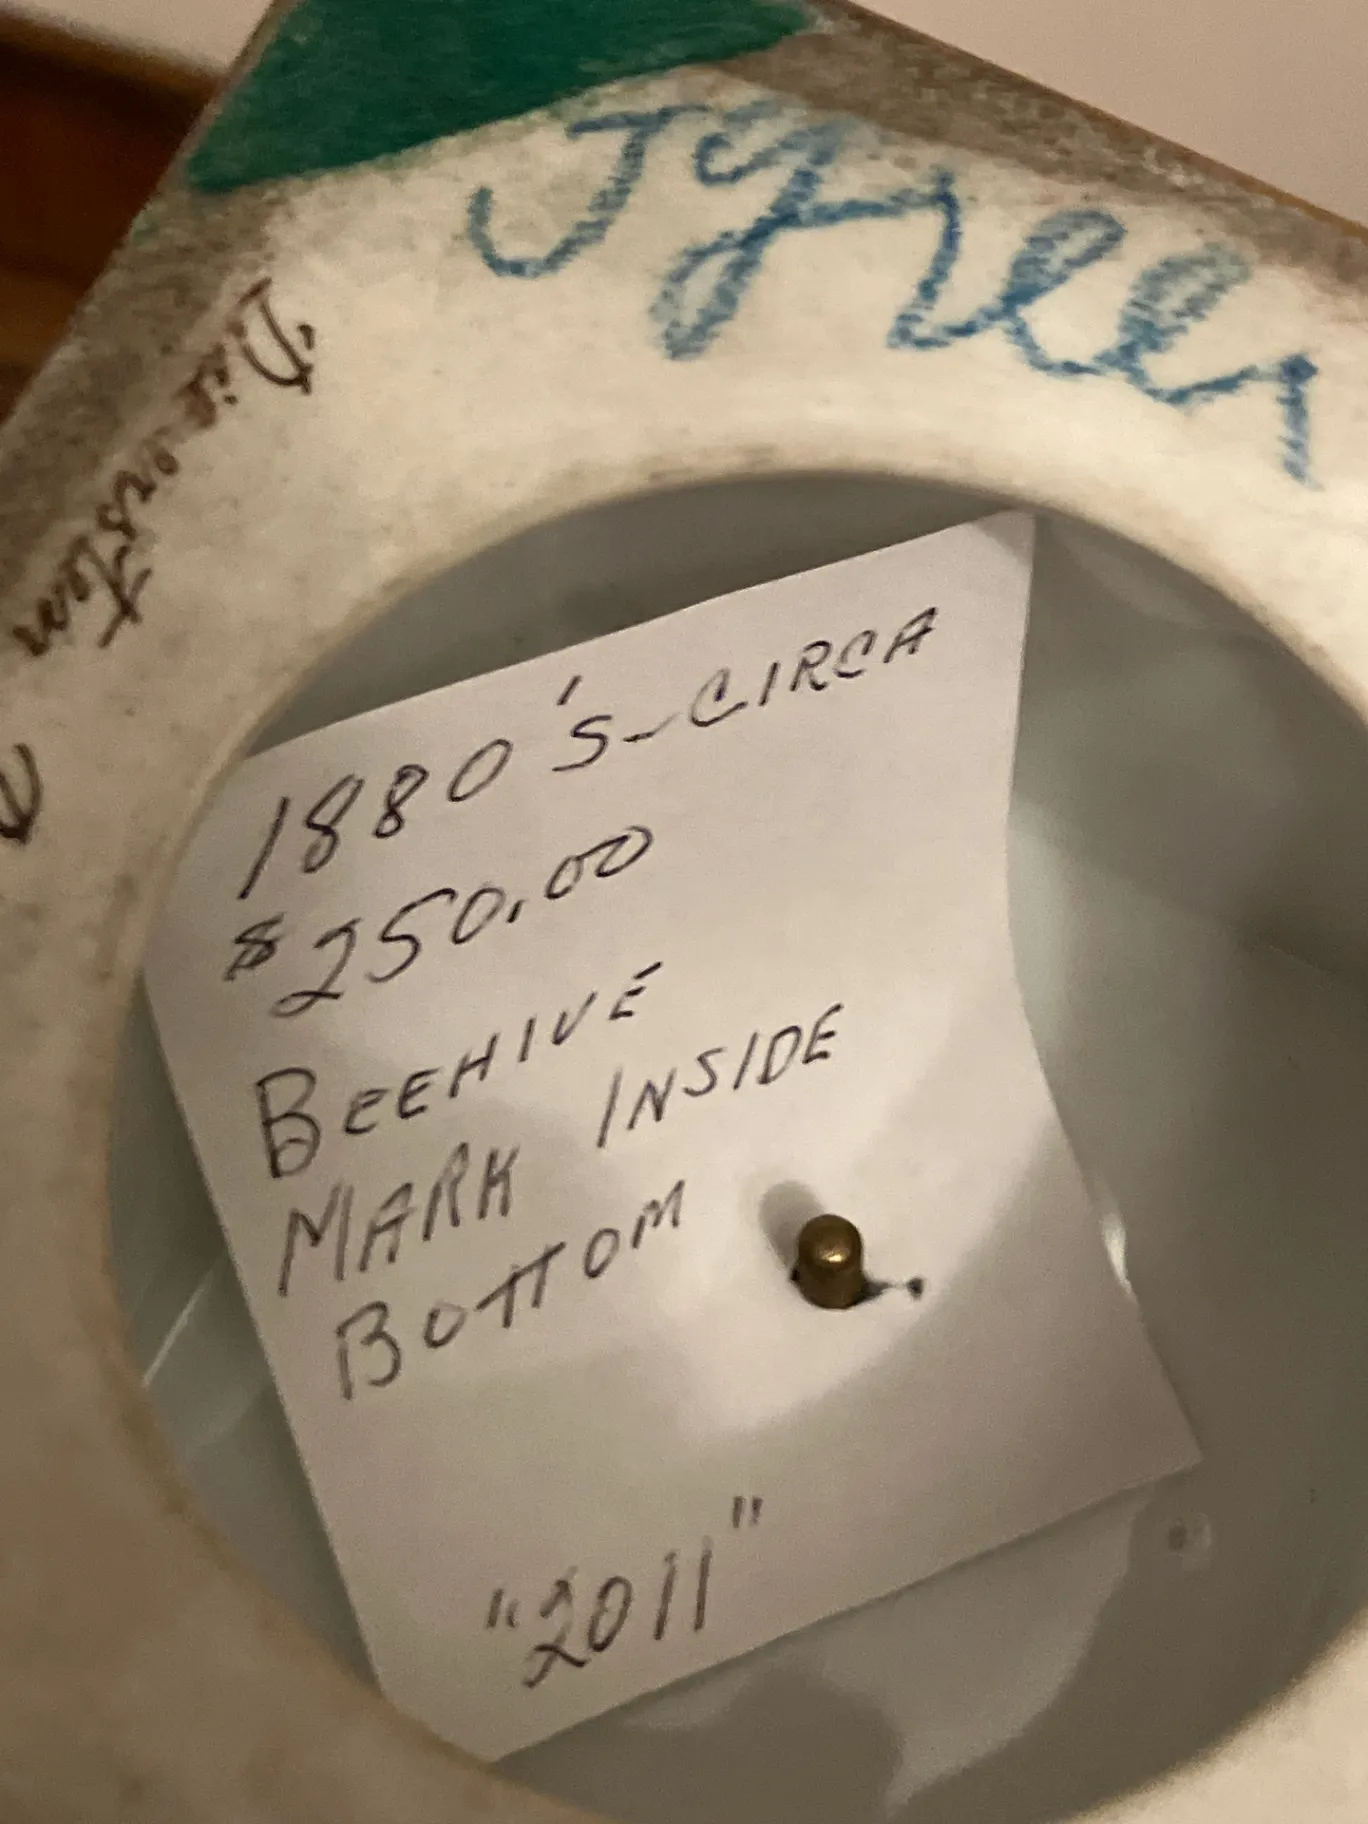 J Green
1880's-CIRCA
$250.00
BEEHIVE
MARK INSIDE
BOTTOM
"2011"